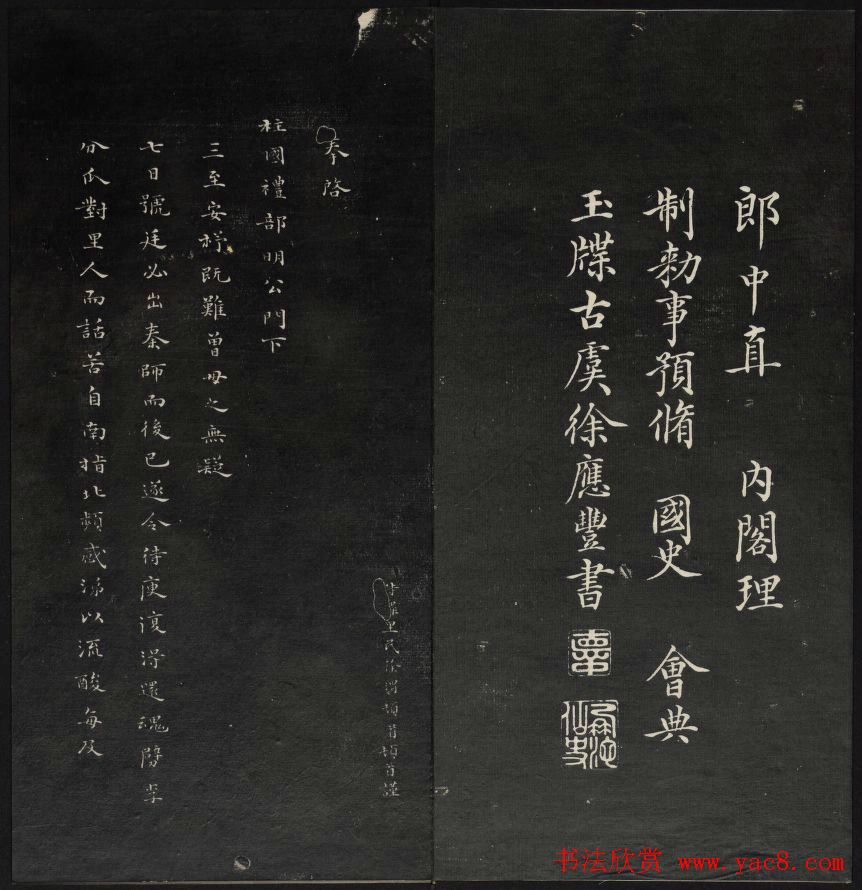 郎中直 内閣理
制勑事預脩 國史 會典
玉牒古虞徐應豐書
罪里民徐渭頓首頓首謹
奉啓
柱國禮部明公門下
三至安枰既難曾母之無疑
七日號廷必出秦師而後已遂令待庚復得還魂隣李
分瓜對里人而話苦自南指北頻感涕以流酸每及
书法欣赏 www.yac8.com